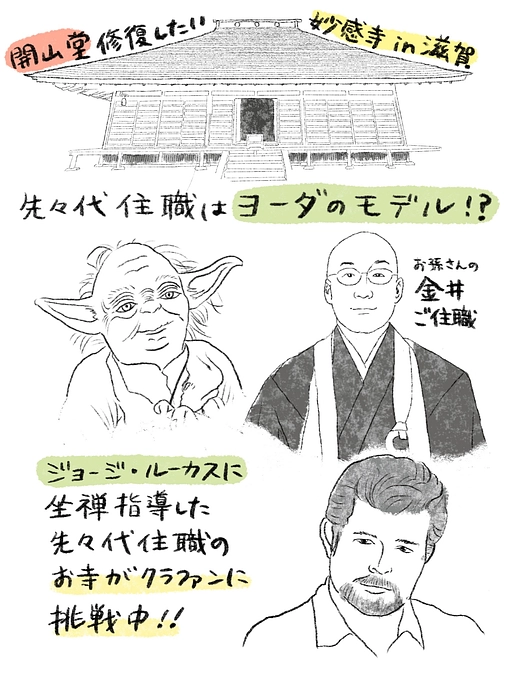 開山堂修復したい
妙感寺in滋賀
先々代住職はヨーダのモデル!?
お孫さんの
金井
ご住職
ジョージ・ルーカスに
坐禅指導した
先々代住職の
お寺がクラファンに
挑戦中!!